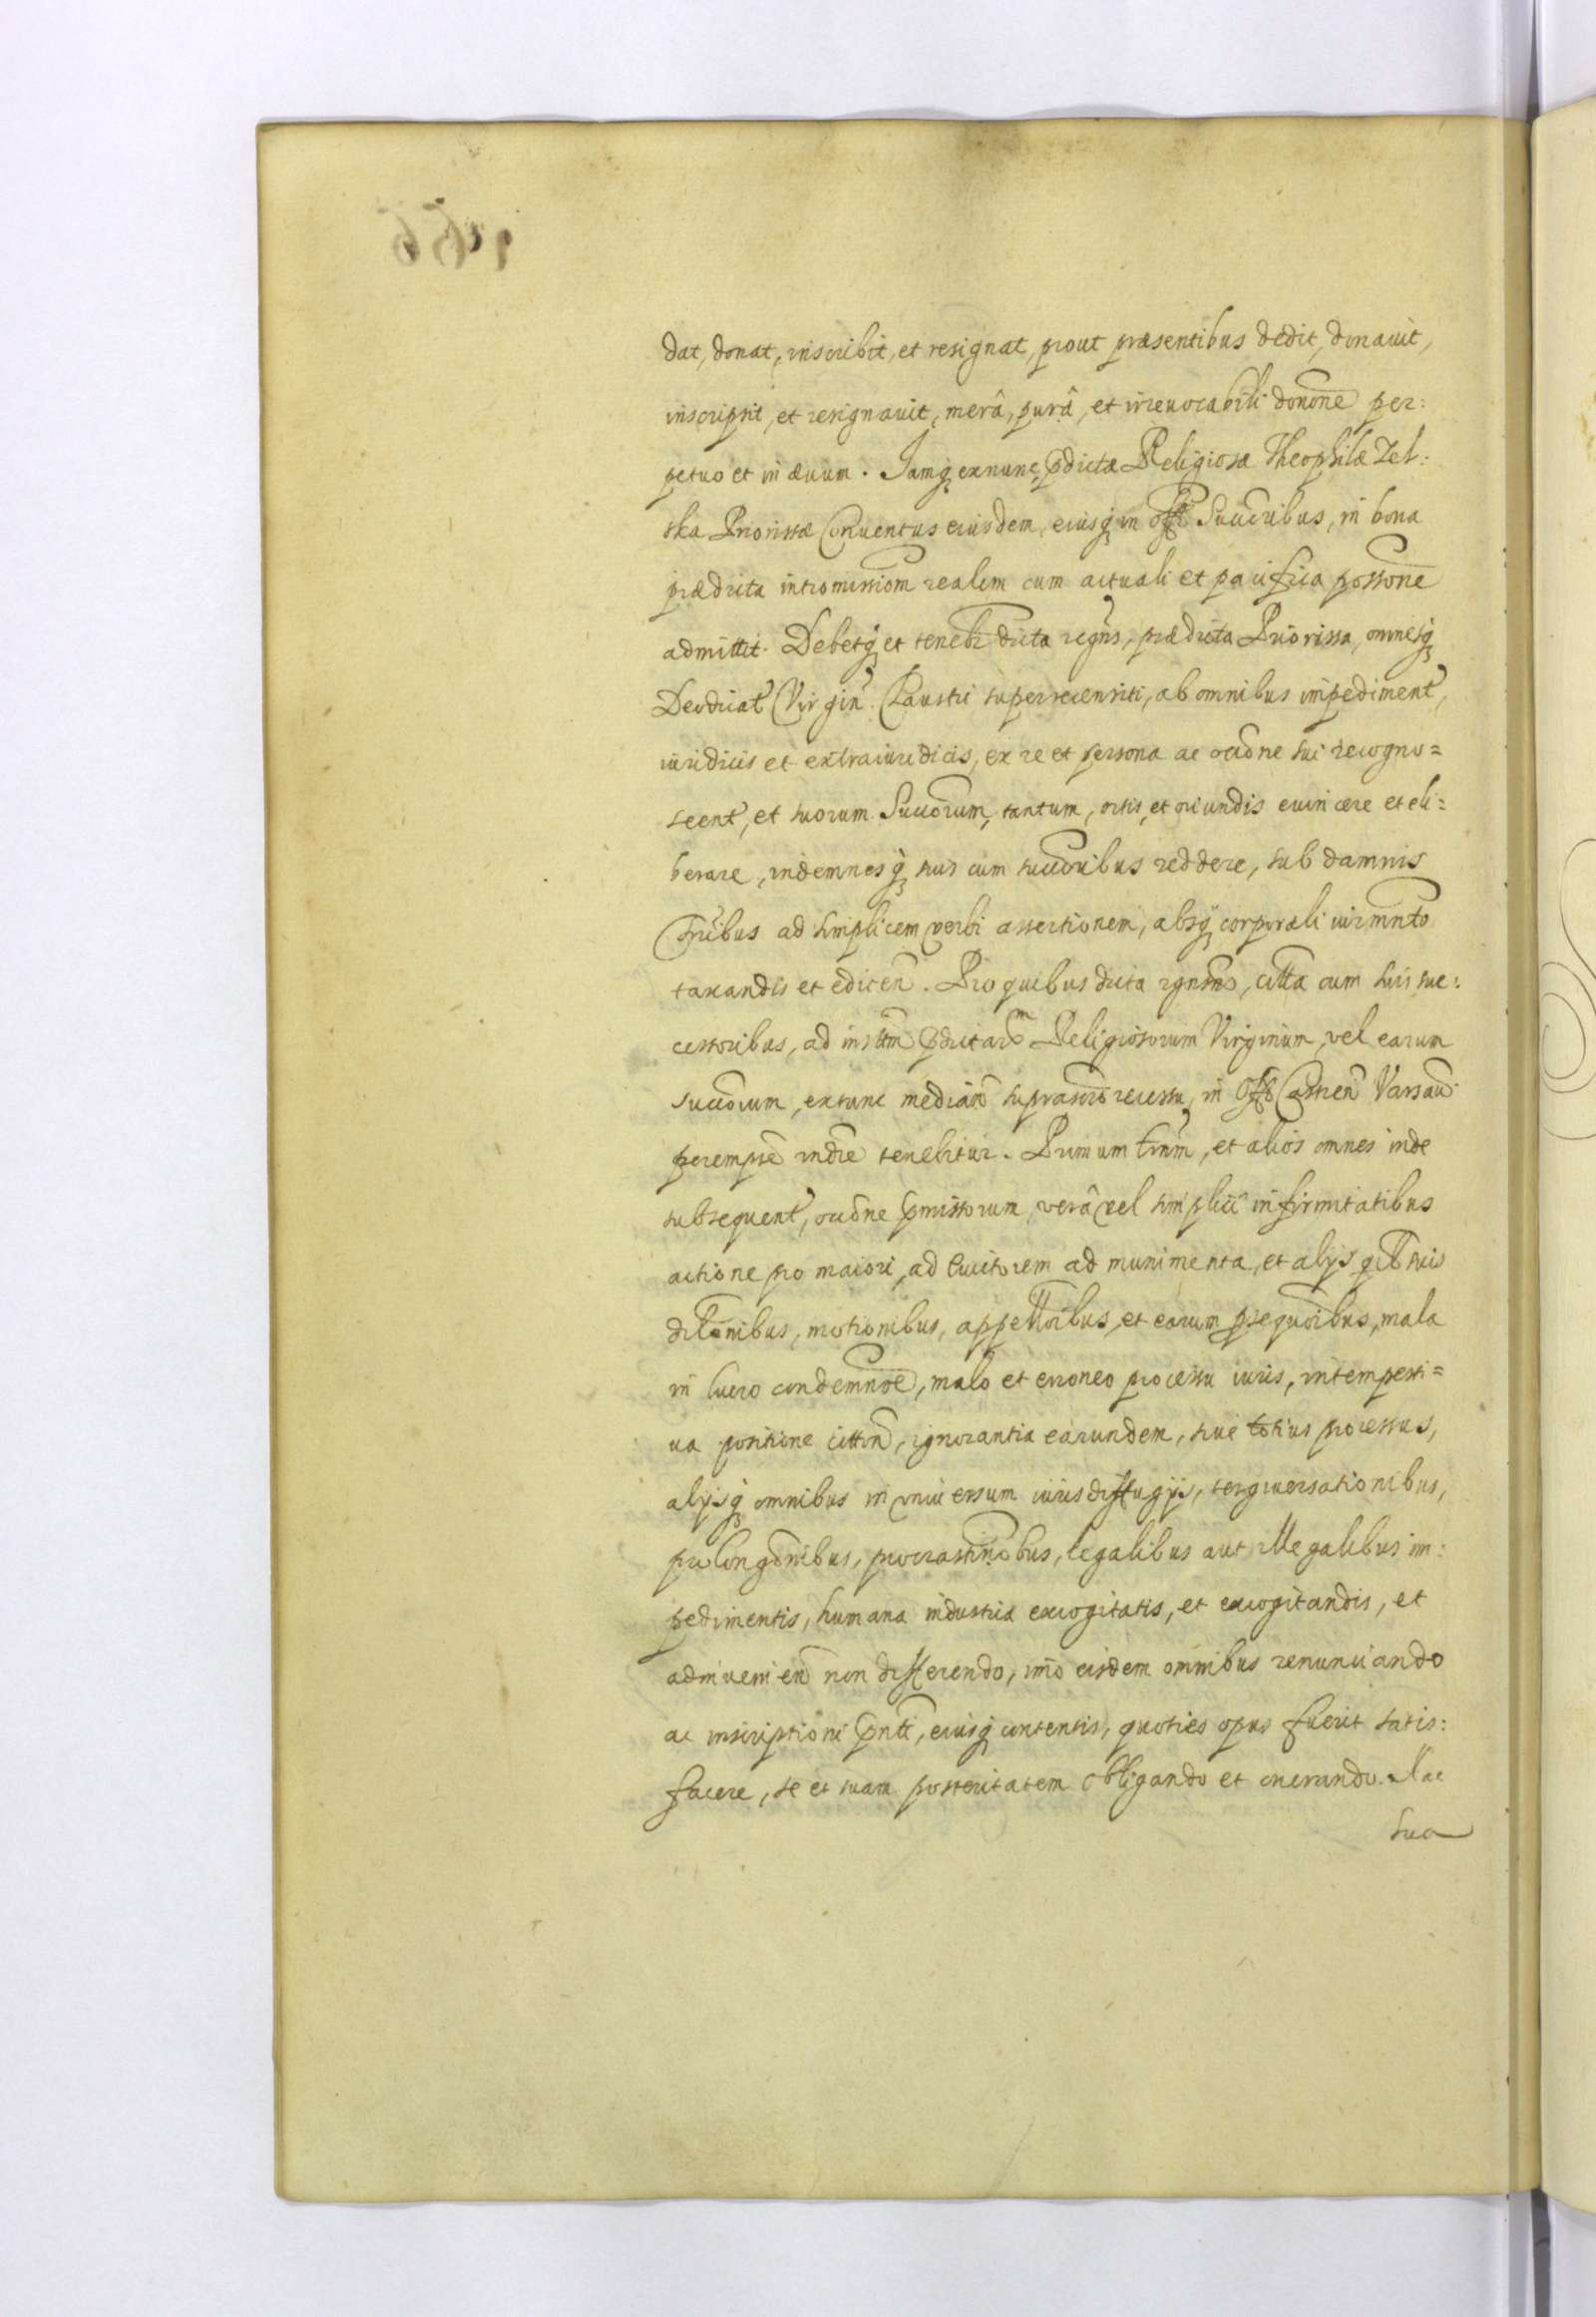 dat, donat, inscribit, et resignat, prout præsentibus dedit, donauit,
inscripsit, et resignauit, merâ, purâ, et irreuocabili donõne per:
petuo et in æuum. Iamq exnunc pdictæ Religiosæ Theophilæ Zel:
ska Priorissæ Conuentus eiusdem, eiusq in offi Succribus, in bona
prædicta intromissiom realem cum actuali et pacifica possone
admittit. Debetq et teneb dicta regns, prædicta Priorissa, omnesq
Deodicat Virgin Claustri superrecensiti, ab omnibus impediment,
iuridicis et extraiuridicis, ex re et persona ac occõne sui recogno=
scent, et suorum Succorum, tantum, ortis, et oriundis euincere et eli=
berare, indemnesq suis cum succribus reddere, sub damnis
tribus ad simplicem verbi assertionem, absq corporali iurmnto
taxandis et edicen. Pro quibus dicta rgns, citta cum suis suc:
cessoribus, ad instm pdictar Religiosorum Virginum, vel earum
succorum, extunc median suprascro recessu, in Offo Castren Varsau
perempte indre tenebitur. Primum trnm, et alios omnes inde
subsequent, occõne pmissorum verâ vel simplici infirmitatibus
actione pro maiori, ad Euictorem ad munimenta, et alijs qib suis
dilonibus, motionibus, appellõibus, et earum psequõibus, mala
in lucro condemnõe, malo et erroneo processu iuris, intempesti=
ua positione citton, ignorantia earundem, siue totius processus,
alijsq omnibus in vniuersum iuris diffugijs, tergiuersationibus,
prolongõnibus, procrastinobus, legalibus aut illegalibus im:
pedimentis, humana industria excogitatis, et excogitandis, et
adinuenien non differendo, imo eisdem omnibus renunciando
ac inscriptioni pnti, eiusq contentis, quoties opus fuerit satis:
facere, se et suam posteritatem obligando et onerando. Hac
sua